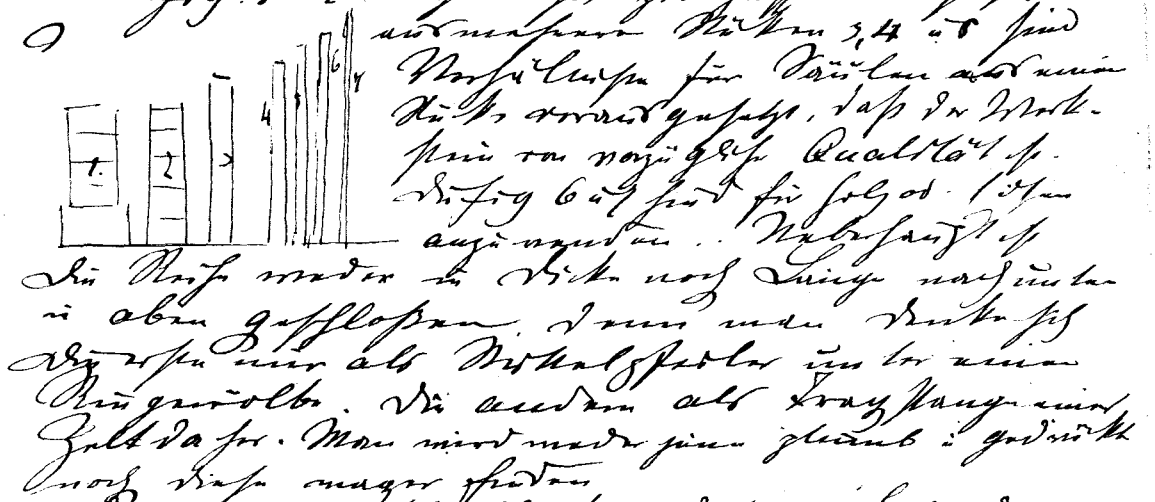 aus mehrern Stükken 3, 4 u 5 sind
Verhältniße für Säulen aus einem
Stükk vorausgesetzt, daß der Werk-
stein von vorzüglicher Qualität ist.
6 u 7 sind für Holz od. Eisen
anzuwenden.. Ueberhaupt ist
die Reihe weder in Dicke noch Länge nach unten
u oben geschloßen, denn man denke sich
die erste nur als Mittelpfeiler unter einem
gewölbe. Die andern als Tragstange eines
Zeltdaches. Man wird weder jene plump u gedrückt
noch diese mager finden
1.
2
3
4
5
6
7